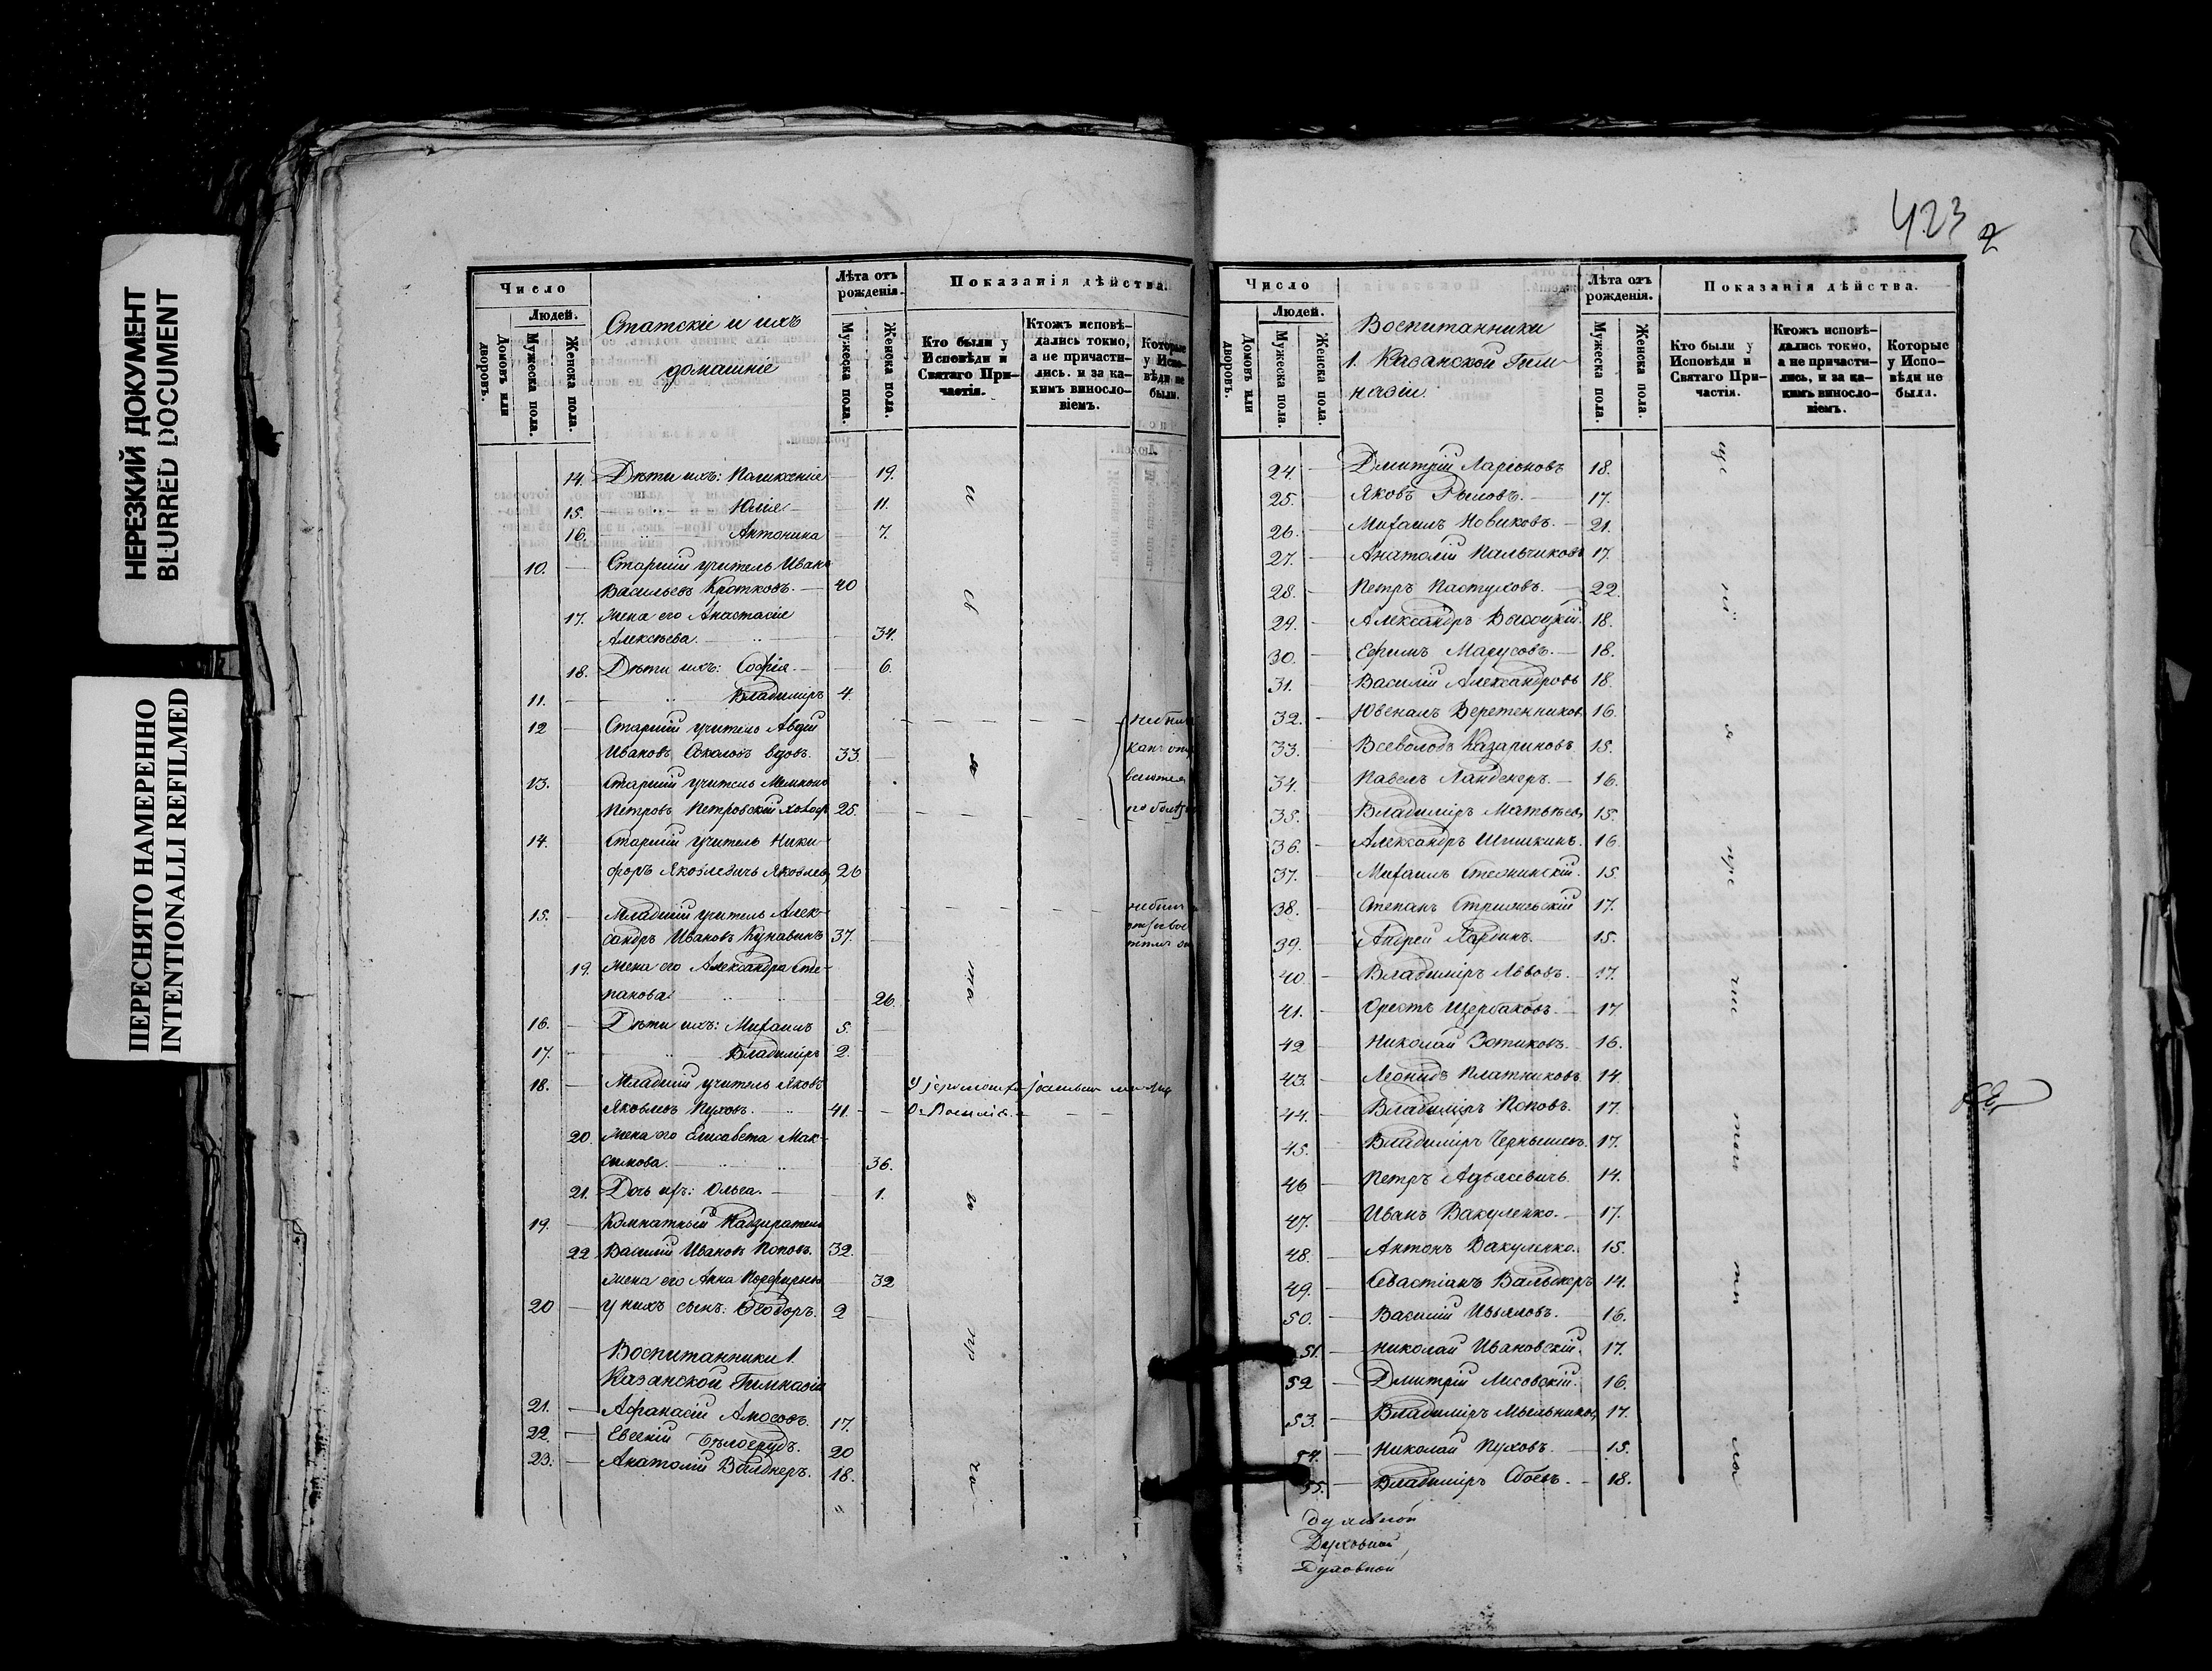 НЕРЕЗКИЙ ДОКУМЕНТ
BLURRED DOCUMENT
ПЕРЕСНЯТО НАМЕРЕННО
INTENTIONALLI REFILMED
Число
Людей.
Домовъ или дворовъ.
Мужеска пола.
Женска пола.
Статскіе и ихъ
домашніе
Лѣта отъ рожденія.
Мужеска пола.
Женска пола.
Показанія дѣйства.
Кто были у Исповѣди и Святаго Причастія.
Ктожъ исповѣдались токмо, а не причастились. и за какимъ винословіемъ.
Которые у Исповѣди не были.
14. Дѣти ихъ: 19.
15. Юлія 11.
16. Антонина 7.
10. Старшій учитель Иванъ
Васильевъ Кротковъ. 40
17. Жена его Анастасіе
Алексѣева. 34.
18. Дѣти ихъ: Софія 6.
11. Владиміръ 4
12 Старшій учитель Авдій
Ивановъ Соколовъ вдовъ. 33.
13. Старшій учитель
Петровъ Петровскій холост 25.
14. Старшій учитель Ники-
форъ Яковлевичъ Яковлевъ 26
15. Младшій учитель Алек-
сандръ Ивановъ Кунавинъ 37.
19. Жена его Александра Сте-
панова 26.
16. Дѣти ихъ: Михаилъ 5.
17. Владиміръ 2.
18. Младшій учитель Яковъ
Яковлевъ Пуховъ. 41.
20. Жена его Елисавета Мак-
симова. 36.
21. Дочь ихъ: Ольга. 1.
19. Комнатный Надзиратель
22 Василій Ивановъ Поповъ. 32.
Жена его Анна Порфирьева 32
20 У нихъ сынъ: Ѳеодоръ. 2
Воспитанники 1.
Казанской Гимназіи
21. Афанасій Амосовъ. 17.
22. Евгеній Бѣлогрудъ. 20
23. Анатолій Вагнеръ. 18.
423
2
Число
Людей.
Домовъ или дворовъ.
Мужеска пола.
Женска пола.
Воспитанники
1. Казанской Гим-
назіи.
Лѣта отъ рожденія.
Мужеска пола.
Женска пола.
Показанія дѣйства.
Кто были у Исповѣди и Святаго Причастія.
Ктожъ исповѣдались токмо, а не причастились, и за какимъ винословіемъ.
Которые у Исповѣди не были.
24. Дмитрій Ларіоновъ 18.
25. Яковъ Рыловъ. 17.
26. Михаилъ Новиковъ. 21.
27. Анатолій Пальчиковъ 17.
28. Петръ Пастуховъ. 22.
29. Александръ Высоцкій. 18.
30. Ефимъ Марусовъ. 18.
31. Василій Александровъ 18.
32. Ювеналъ Веретенниковъ 16.
33. Всеволодъ Казариновъ 15.
34. Павелъ 16.
35. Владиміръ Матвѣевъ 15.
36. Александръ Шишкинъ. 16.
37. Михаилъ 15.
38. Степанъ 17.
39. Андрей Хардинъ. 15.
40. Владиміръ Львовъ. 17.
41. Орестъ Щербаковъ. 17.
42 Николай Зотиковъ. 16.
43. Леонидъ Платниковъ. 14.
44. Владиміръ Поповъ. 17.
45. Владиміръ Чернышевъ. 17.
46 Петръ 14.
47. Иванъ Вакуленко. 17.
48. Антонъ Вакуленко. 15.
49. Севастіанъ 14.
50. Василій 16.
51. Николай Ивановскій. 17.
52 Дмитрій Лисовскій. 16.
53. Владиміръ Мельниковъ 17.
54. Николай Пуховъ. 15.
55. Владиміръ Сбоевъ. 18.
Духовной
Духовной
Духовной